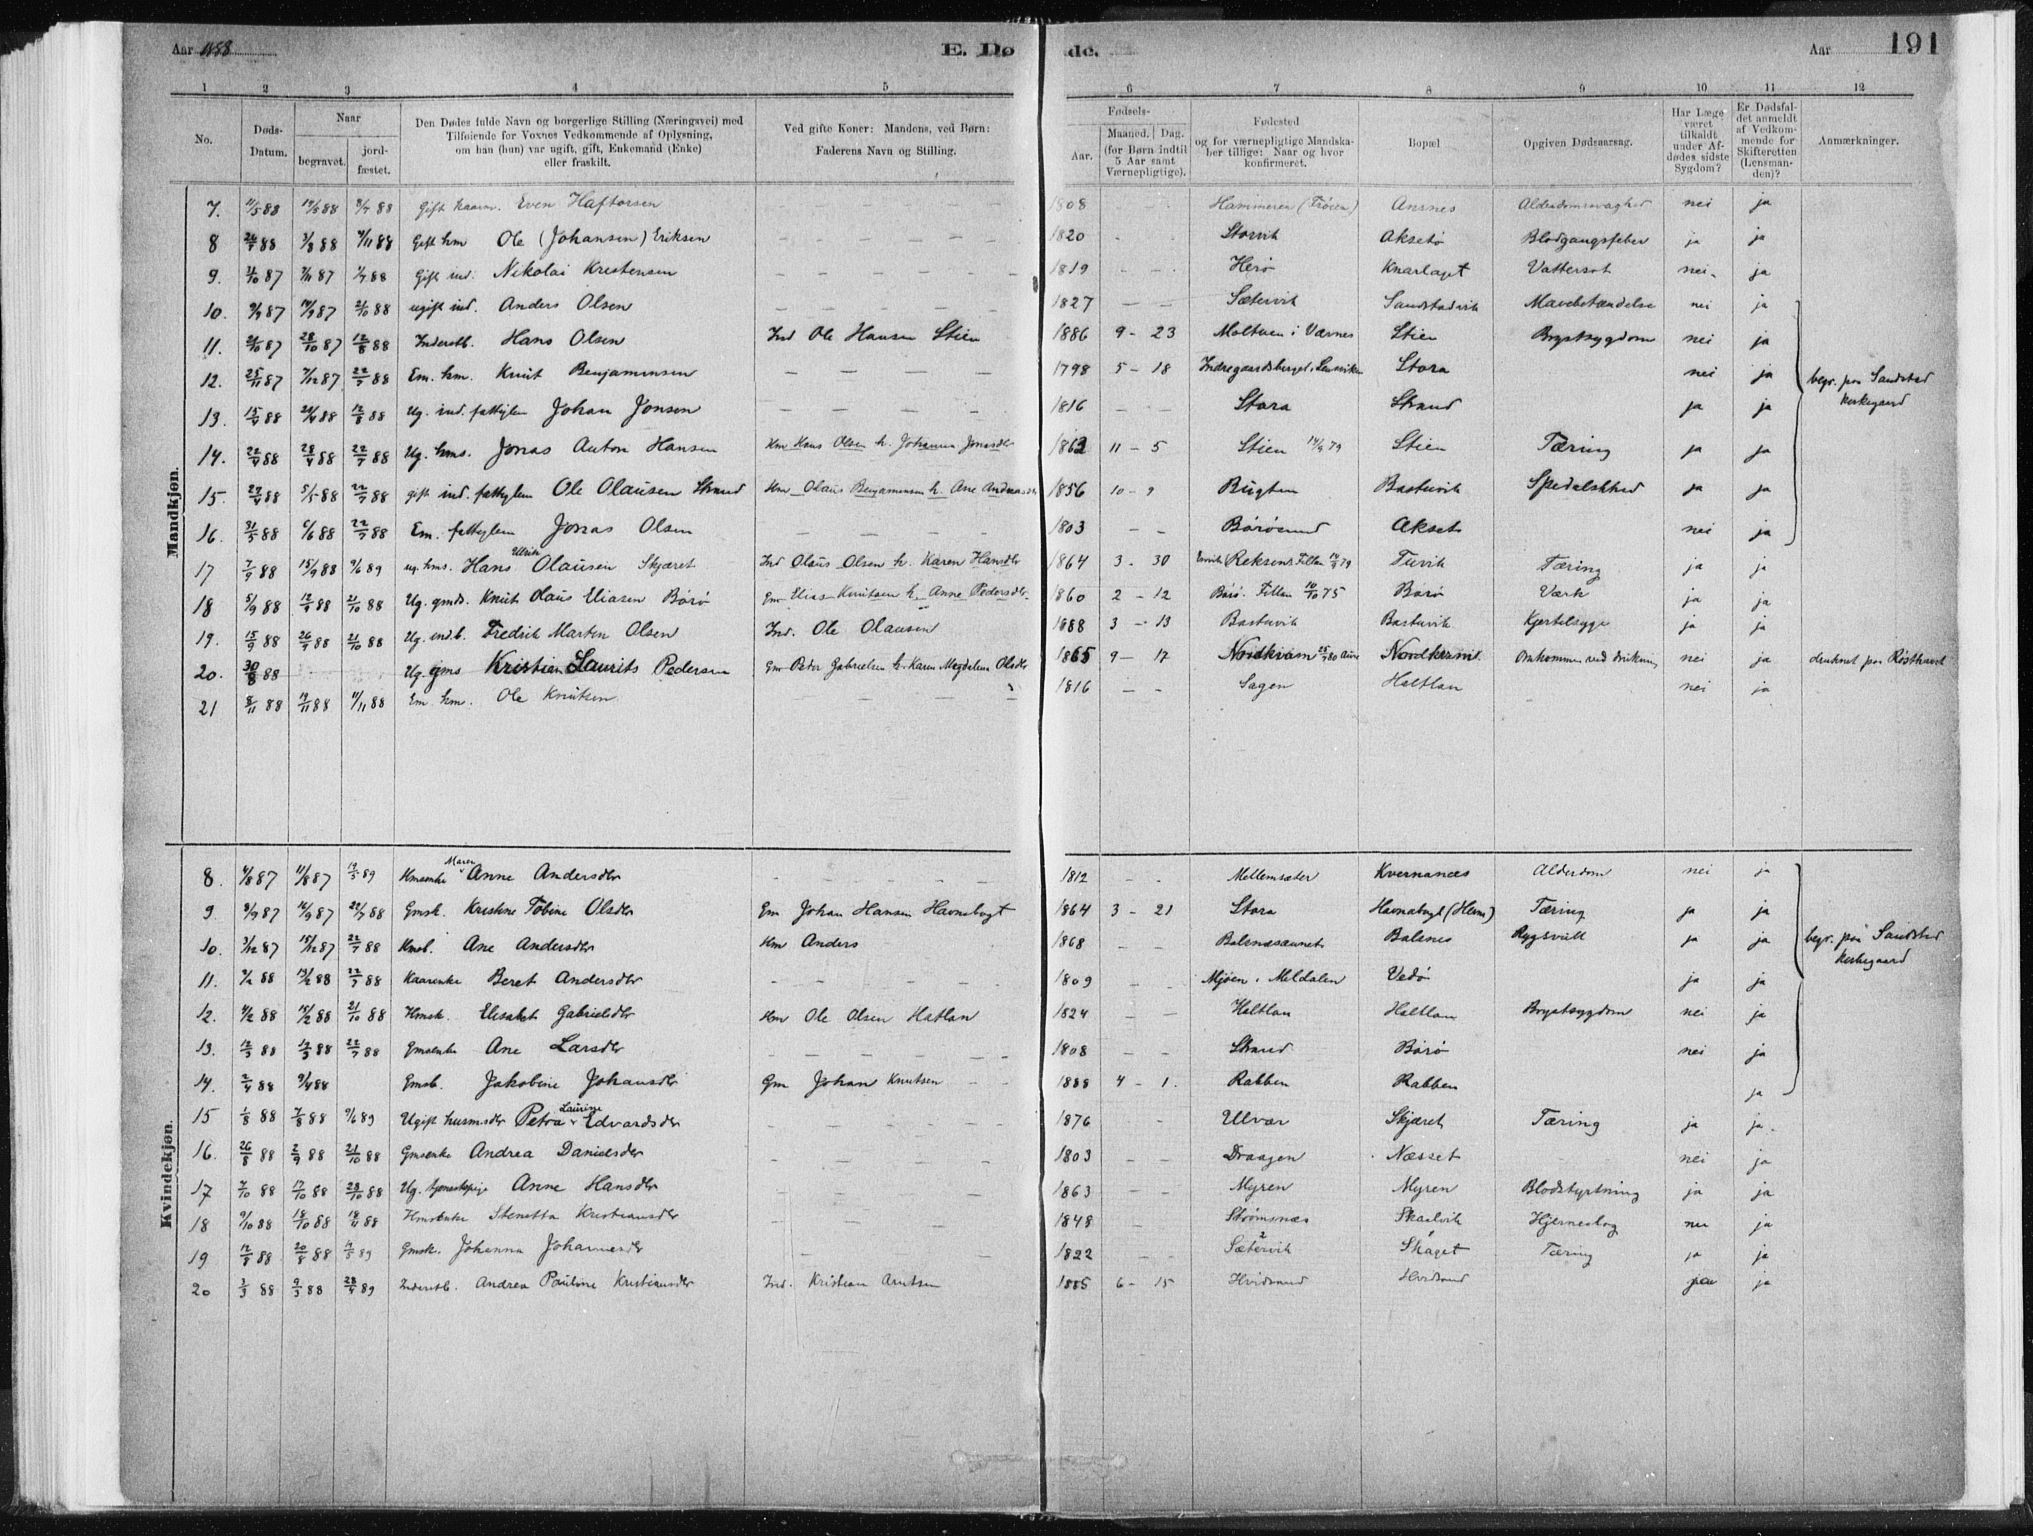 Aar 1888 E. Dø de. Aar 191
1 2 3 4 5 6 7 8 9 10 11 12
No. Døds-Datum. Naar begravet. jordfæstet. Den Dødes fulde Navn og borgerlige Stilling (Næringsvei) med Tilføiende for Voxnes Vedkommende af Oplysning, om han (hun) var ugift, gift, Enkemand (Enke) eller fraskilt. Ved gifte Koner: Mandens, ved Børn: Faderens Navn og Stilling. Fødsels- Aar. Maaned. Dag. (for Børn indtil 5 Aar samt Værnepligtige). Fødested og for værnepligtige Mandskaber tillige: Naar og hvor konfirmeret. Bopæl Opgiven Dødsaarsag. Har Læge været tilkaldt under Afdødes sidste Sygdom? Er Dødsfaldet anmeldt af Vedkommende for Skifteretten (Lensmanden)? Anmærkninger.
Mandkjøn.
7. 11/5 88 19/5 88 88 Gift kaarm. Even Haftorsen 1808 Hammeren (Frøien) Ansnes Alderdomssvaghed nei ja
8 88 3/8 88 11/11 88 Gift hm Ole (Johansen) Eriksen 1820 Storvik Aksetø Blodgangsfeber ja ja
9. 87 87 88 Gift ind. Nikolai Kristensen 1819 Herø Knarlaget Vattersot nei ja
10. 9/9 87 19/9 87 21/10 88 ugift ind. Anders Olsen 1827 Sætervik Sandstadvik Mavebetændelse nei ja
11. 21/10 87 28/10 87 12/8 88 Inderstb. Hans Olsen Ind Ole Hansen Stien 1886 9 - 23 Moltuen i Værnes Stien Brystsygdom nei ja
12. 25/11 87 7/12 87 22/7 88 Em. hm. Knut Benjaminsen 1798 5 - 18 Indregaardsberget, Lensviken Stora nei ja begr. paa Sandstad Kirkegaard
13. 15/4 88 20/4 88 12/8 88 Ug. ind. fattiglem Johan Jonsen 1816 Stora Strand ja ja
14. 22/4 88 28/4 88 22/7 88 Ug. hms. Jonas Anton Hansen Hm Hans Olsen h. Johanna Jonasdtr 1862 11 - 5 Stien 79 Stien Tæring ja ja
15. 27/4 88 5/5 88 22/7 88 gift ind. fattiglem Ole Olausen Strand Hm Olaus Benjaminsen h. Ane Andreasdtr 1856 10 - 9 Bugten Bastuvik Spedalskhed ja ja
16. 31/5 88 6/6 88 22/7 88 Em. fattiglem Jonas Olsen 1803 Børøsund Akset nei ja
17 7/9 88 15/9 88 9/6 89 ug. hms. Hans Ulrik Olausen Skjæret Ind Olaus Olsen h. Karen Hansdtr 1864 3 - 30 Reksen Fillan 79 Tuvik Tæring ja ja
18 5/9 88 12/9 88 21/10 88 Ug. gmds. Knut Olaus Eliasen Børø Gm Elias Knutsen h. Anne Pedersdtr 1860 2 - 12 Børø. Fillan 75 Børø Værk ja ja
19. 15/9 88 26/9 88 21/10 88 Ug. indb. Fredrik Martin Olsen Ind. Ole Olausen 1888 3 - 13 Bastuvik Bastuvik Kjertelsyge ja ja
20. 30/8 88 Ug. gms Kristian Laurits Pedersen Gm Peder Gabrielsen h. Karen Magdalena Olsdtr 1865 9 - 17 Nordkvam 80 Nordkvam Omkommen ved drukning nei ja druknet paa Røsthavet
21 8/11 88 17/11 88 11/11 88 Em. hm. Ole Knutsen 1816 Sagen Haltlan nei ja
Kvindekjøn.
8. 4/8 87 11/8 87 89 Hmsenke Maren Anne Andersdtr 1812 Mellemsæter Kvernanæs Alderdom nei ja
9 8/9 87 16/9 87 22/7 88 Gmsk. Kristine Tobine Olsdtr Gm Johan Hansen Havnebogt 1864 3 - 21 Stora Havnebogt (Hevn) Tæring ja ja
10. 3/12 87 15/12 87 22/7 88 Kmsb. Ane Andersdtr Hm Anders 1868 Balsnæsaunet Balsnes Rygsvull ja ja begr. paa Sandstad Kirkegaard
11. 9/2 88 19/2 88 22/7 88 Kaarenke Beret Andersdtr 1809 Mjøen i Meldalen Vedø ja ja
12. 11/2 88 18/2 88 21/10 88 Hmsk. Elisabet Gabrielsdtr Hm Ole Olsen Hatlan 1824 Haltlan Haltlan Brystsygdom nei ja
13. 12/3 88 17/3 88 22/7 88 Gmsenke Ane Larsdtr 1808 Strand Børø nei ja
14. 2/4 88 9/4 88 Gmsb. Jakobine Johansdtr Gm Johan Knutsen 1888 4 - 1. Rabben Rabben ja
15 1/8 88 7/8 88 9/6 89 Ugift husmsdtr Petra Laurine Edvardsdtr 1876 Ulvær Skjæret Tæring ja ja
16. 26/8 88 2/9 88 21/10 88 Gmsenke Andrea Danielsdtr 1803 Draagen Næsset nei ja
17 7/10 88 17/10 88 28/10 88 Ug. tjenestepige Anne Hansdtr 1863 Myren Myren Blodstyrtning ja ja
18 9/10 88 18/10 88 88 Hmsenke Stenetta Kristiansdtr 1848 Strømsnæs Skaalvik Hjerneslag nei ja
19 12/8 88 20/8 88 89 Gmsk. Johanna Johannesdtr 1822 Sætervik Skaget Tæring ja ja
20 3/3 88 9/3 88 28/4 89 Inderstb. Andrea Pauline Kristiansdtr Ind. Kristian Arntsen 1885 6 - 15 Hvidsund Hvidsund ja